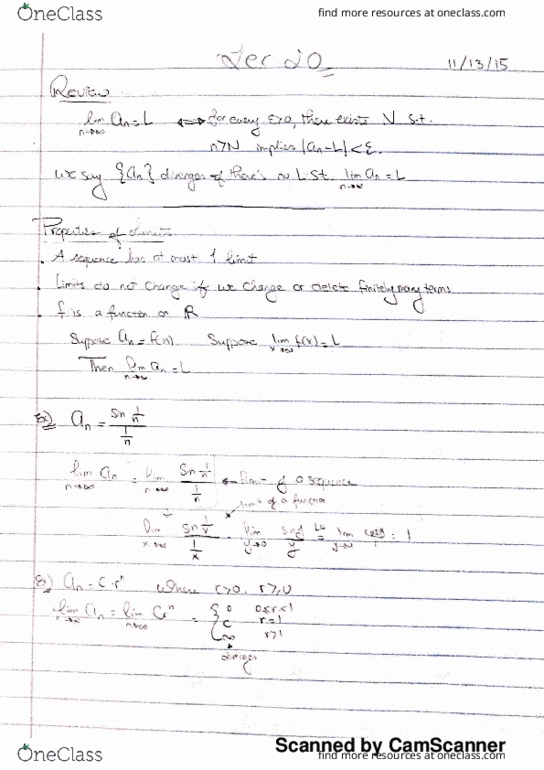 OneClass
find more resources at oneclass.com
Lec 20
11/13/15
Review
lim n→∞ an = L ⟷ for every ε>0, there exists N s.t.
n>N implies |an-L|<ε.
we say {an} diverges if there's no L s.t. lim n→∞ an = L
Properties of Limits
. A sequence has at most 1 limit
. Limits do not change if we change or delete finitely many terms
. f is a function on ℝ
Suppose an = f(n) Suppose lim x→∞ f(x) = L
Then lim n→∞ an = L
Ex) an = sin 1/n / 1/n
lim n→∞ an = lim n→∞ sin 1/n / 1/n ← limit of a sequence
limit of a function
lim x→∞ sin 1/x / 1/x = lim y→0 sin y / y = lim y→0 cos y / 1 = 1
Ex) an = c·rⁿ where c>0, r≥0
lim n→∞ an = lim n→∞ crⁿ = { 0 0≤r<1
c r=1
∞ r>1
diverges
Scanned by CamScanner
OneClass
find more resources at oneclass.com